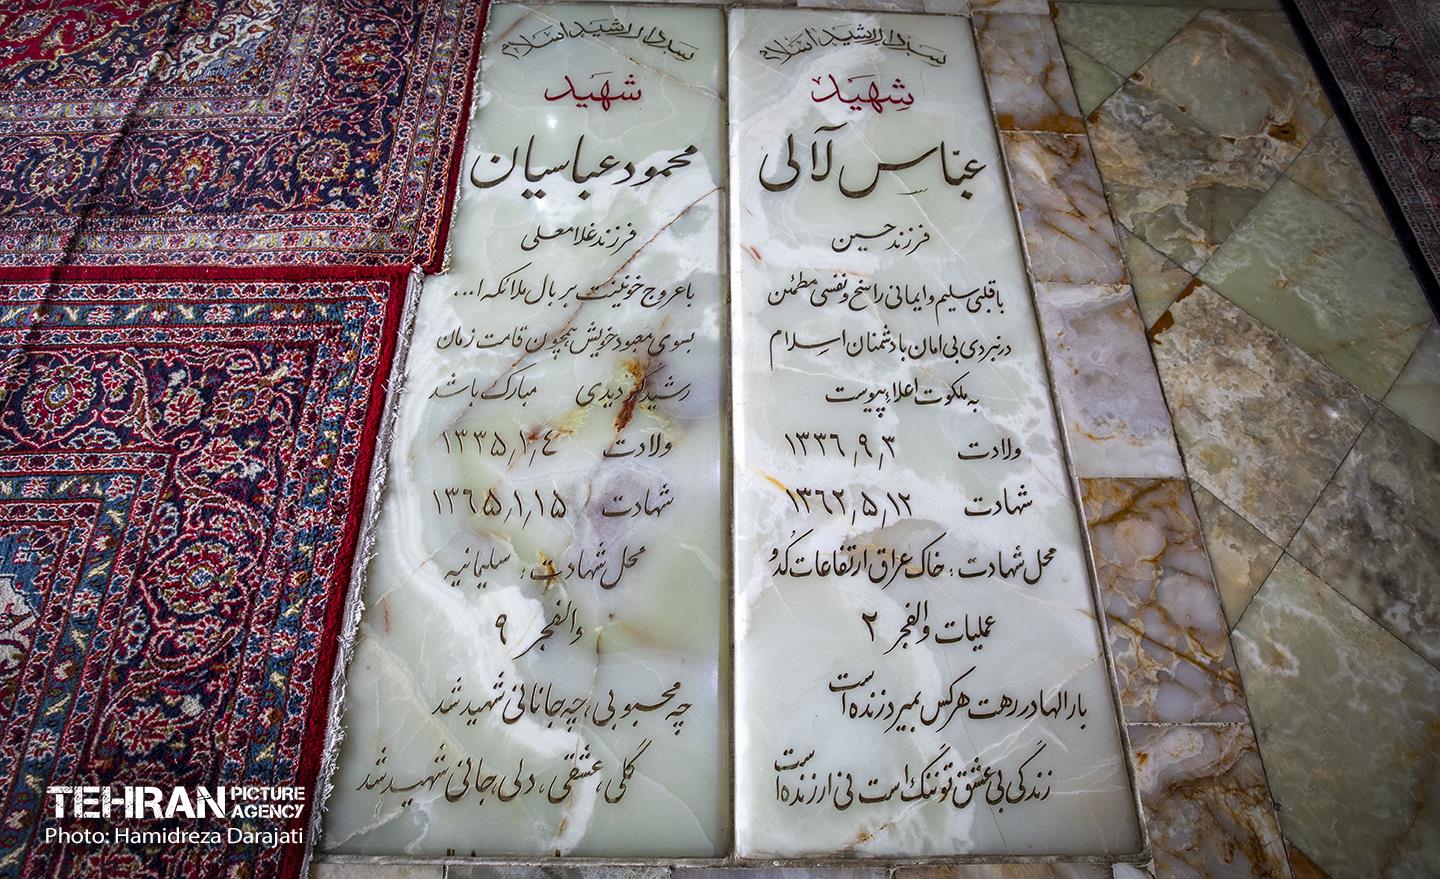 سردار رشید اسلام
شهید
عبّاس لآلی
فرزند حسین
با قلبی سلیم و ایمانی راسخ و نفسی مطمئن
در نبردی بی امان با دشمنان اسلام
به ملکوت اعلاء پیوست
ولادت ۱۳۳۶٫۹٫۳
شهادت ۱۳۶۲٫۵٫۱۲
محل شهادت: خاک عراق ارتفاعات کدو
عملیات والفجر ۲
بارالها در رهت هرکس بمیرد زنده است
زندگی بی عشق تو ننگ است نی ارزنده است
سردار رشید اسلام
شهید
محمود عباسیان
فرزند غلامعلی
با عروج خونینت بر بال ملائکه ا...
بسوی معبود خویش همچون قامت زمان
رشید گردیدی مبارک باشد
ولادت ۱۳۳۵٫۱٫۴
شهادت ۱۳۶۵٫۱٫۱۵
محل شهادت: سلیمانیه
والفجر ۹
چه محبوبی، چه جانانی شهید شد
گلی، عشقی، دلی، جانی شهید شد
TEHRAN PICTURE AGENCY
Photo: Hamidreza Darajati